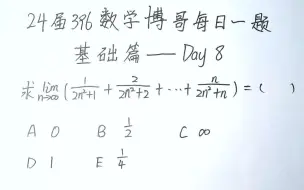 24届396数学博哥每日一题
基础篇——Day 8
求 lim n→∞ (1/(2n²+1) + 2/(2n²+2) + ··· + n/(2n²+n)) = ( )
A 0 B 1/2 C ∞
D 1 E 1/4